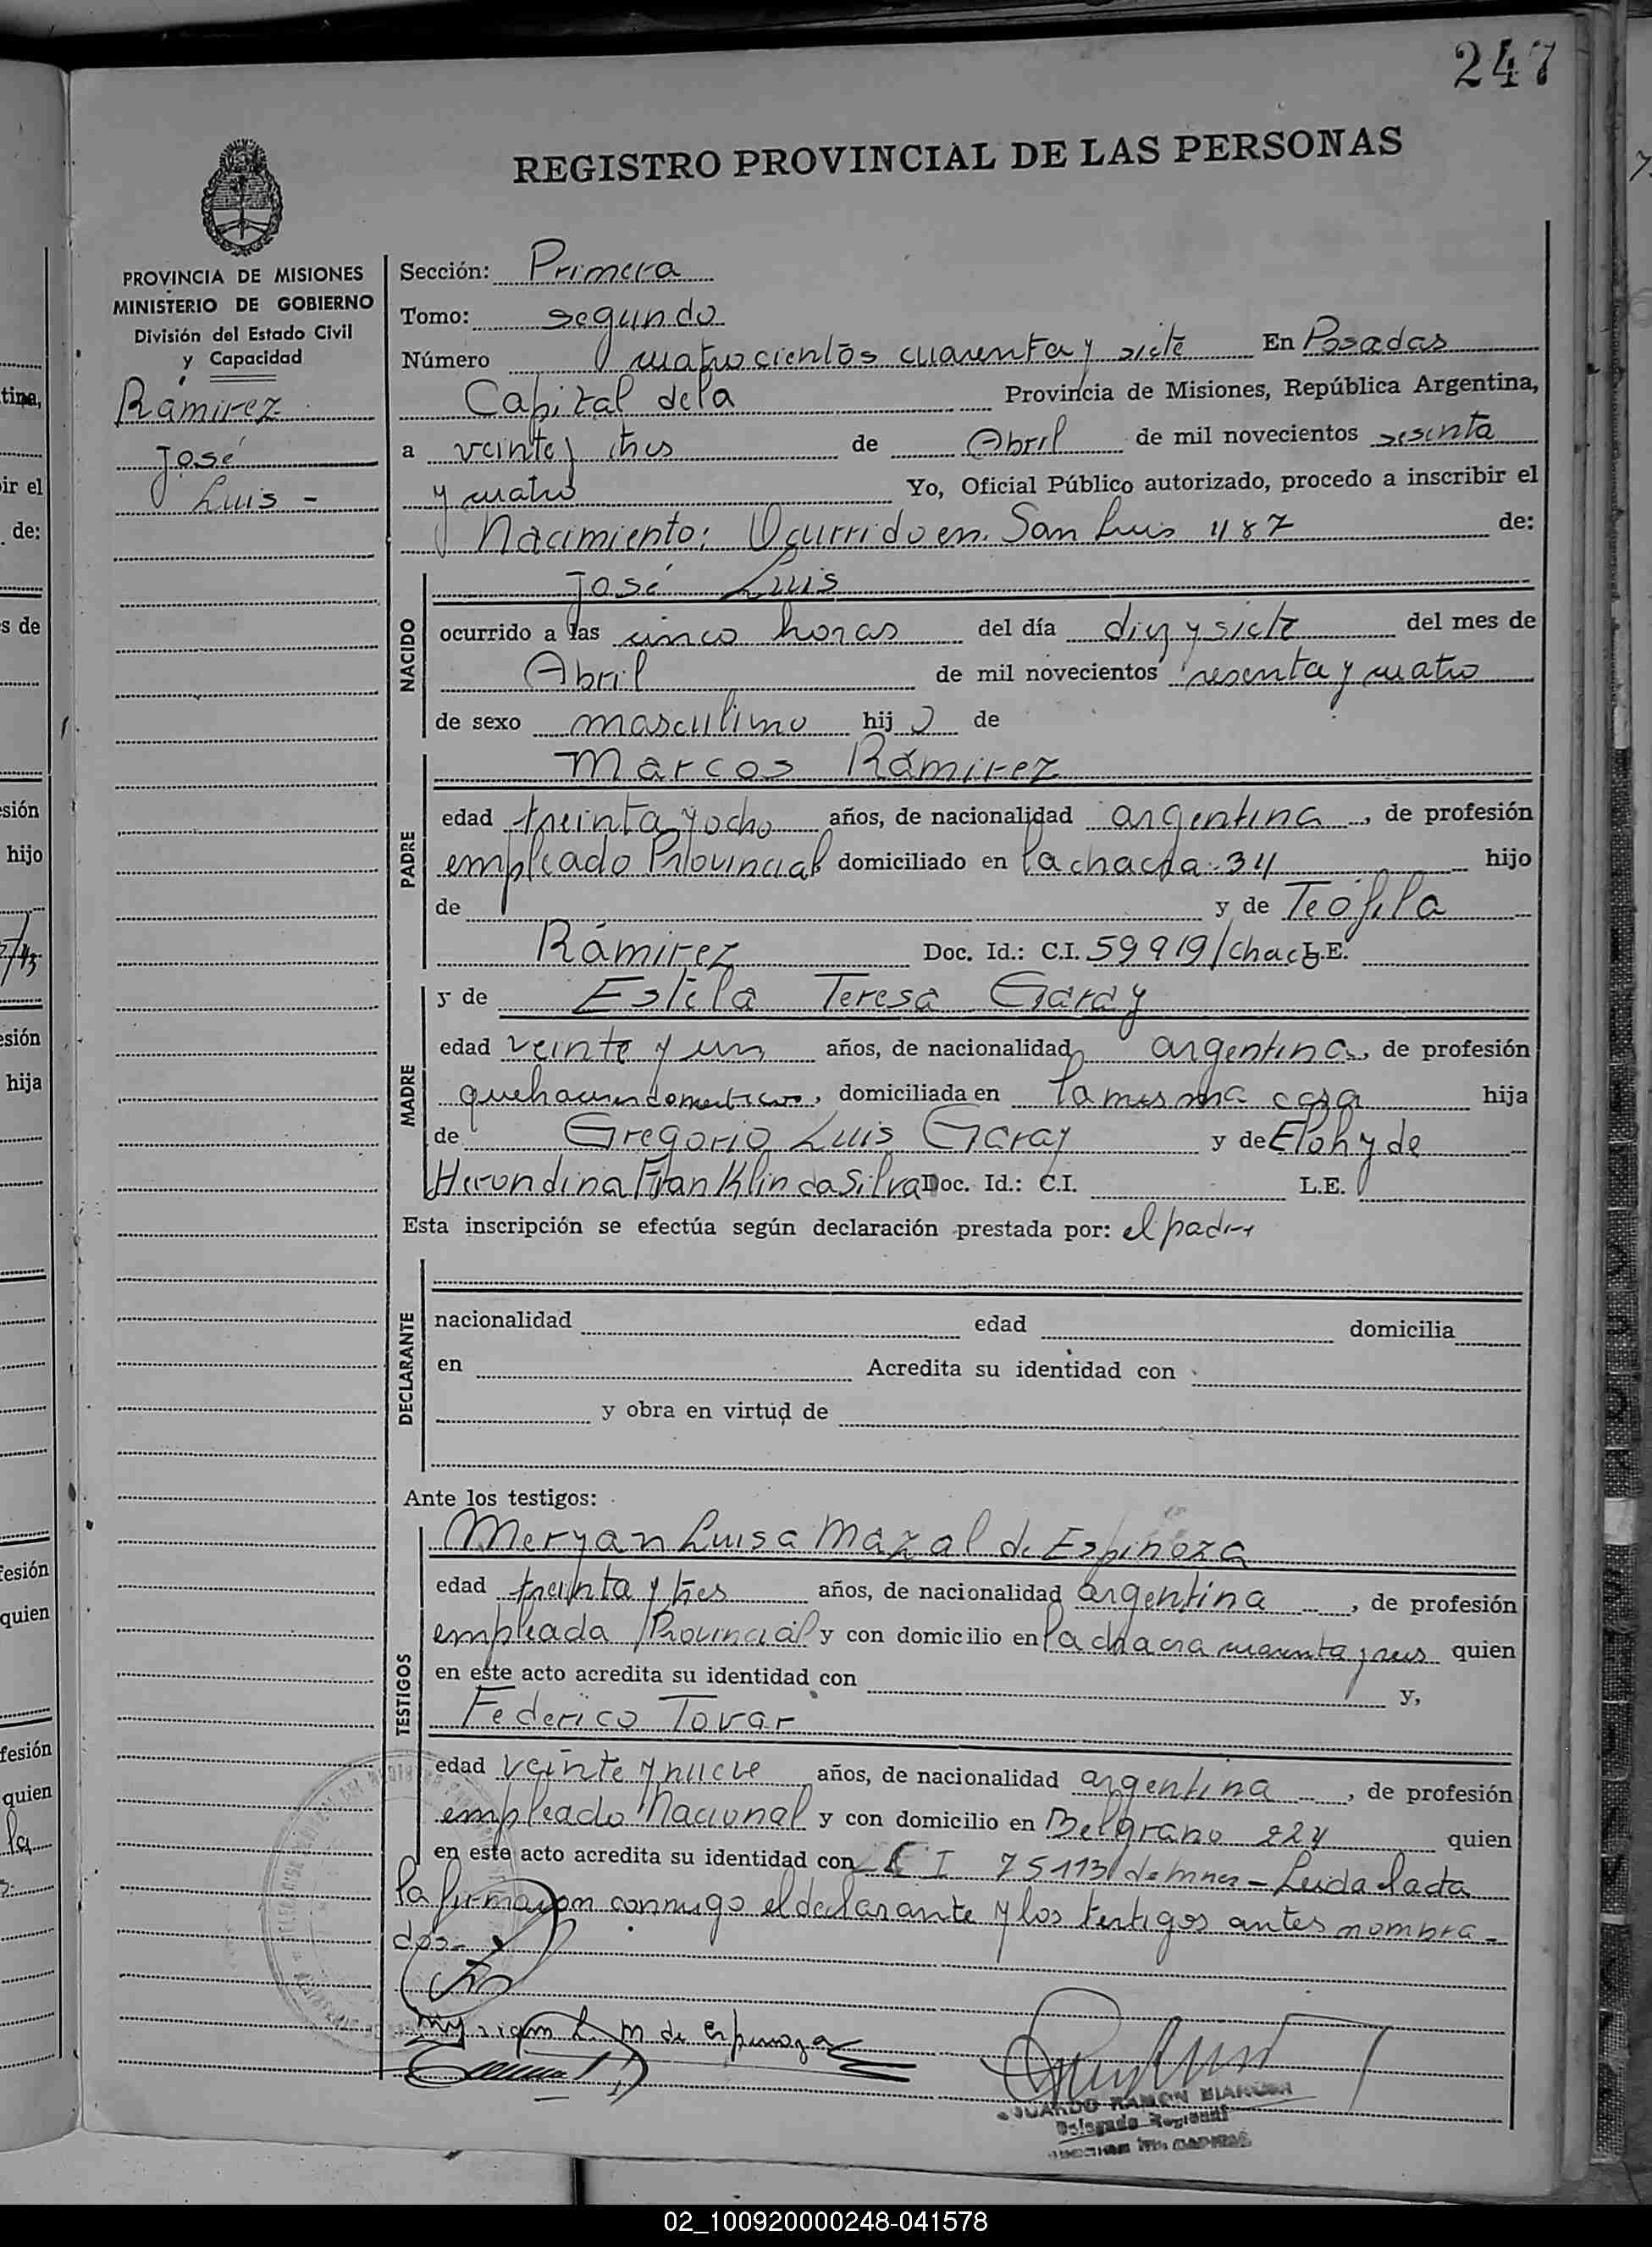 247
REGISTRO PROVINCIAL DE LAS PERSONAS
PROVINCIA DE MISIONES
MINISTERIO DE GOBIERNO
División del Estado Civil
y Capacidad
Ramirez
José
Luis -
Sección: Primera
Tomo: segundo
Número cuatrocientos cuarenta y siete En Posadas
Capital de la Provincia de Misiones, República Argentina,
a veinte y tres de Abril de mil novecientos sesenta
y cuatro Yo, Oficial Público autorizado, procedo a inscribir el
Nacimiento: Ocurrido en San Luis 1187 de:
NACIDO
José Luis
ocurrido a las cinco horas del día diez y siete del mes de
Abril de mil novecientos sesenta y cuatro
de sexo masculino hijo de
PADRE
Marcos Ramirez
edad treinta y ocho años, de nacionalidad argentina, de profesión
empleado Provincial domiciliado en la chacra 34 hijo
de y de Teófila
Ramirez Doc. Id.: C.I. 59919/Chaco L.E.
MADRE
y de Estela Teresa Garay
edad veinte y un años, de nacionalidad argentina, de profesión
quehaceres domesticos, domiciliada en la misma casa hija
de Gregorio Luis Garay y de Elohy de
Herondina Franklin da Silva Doc. Id.: C.I. L.E.
Esta inscripción se efectúa según declaración prestada por: el padre
DECLARANTE
nacionalidad edad domicilia
en Acredita su identidad con
y obra en virtud de
Ante los testigos:
TESTIGOS
Meryan Luisa Mazal de Espinoza
edad treinta y tres años, de nacionalidad argentina, de profesión
empleada Provincial y con domicilio en la chacra cuarenta y quien
en este acto acredita su identidad con y,
Federico Tovar
edad veinte y nueve años, de nacionalidad argentina, de profesión
empleado Nacional y con domicilio en Belgrano 224 quien
en este acto acredita su identidad con C I 75113 de Mnes - Leida el acta
la firmaron conmigo el declarante y los testigos antes nombra-
dos-
Myriam L. M de Espinoza
Delegado
02_100920000248-041578